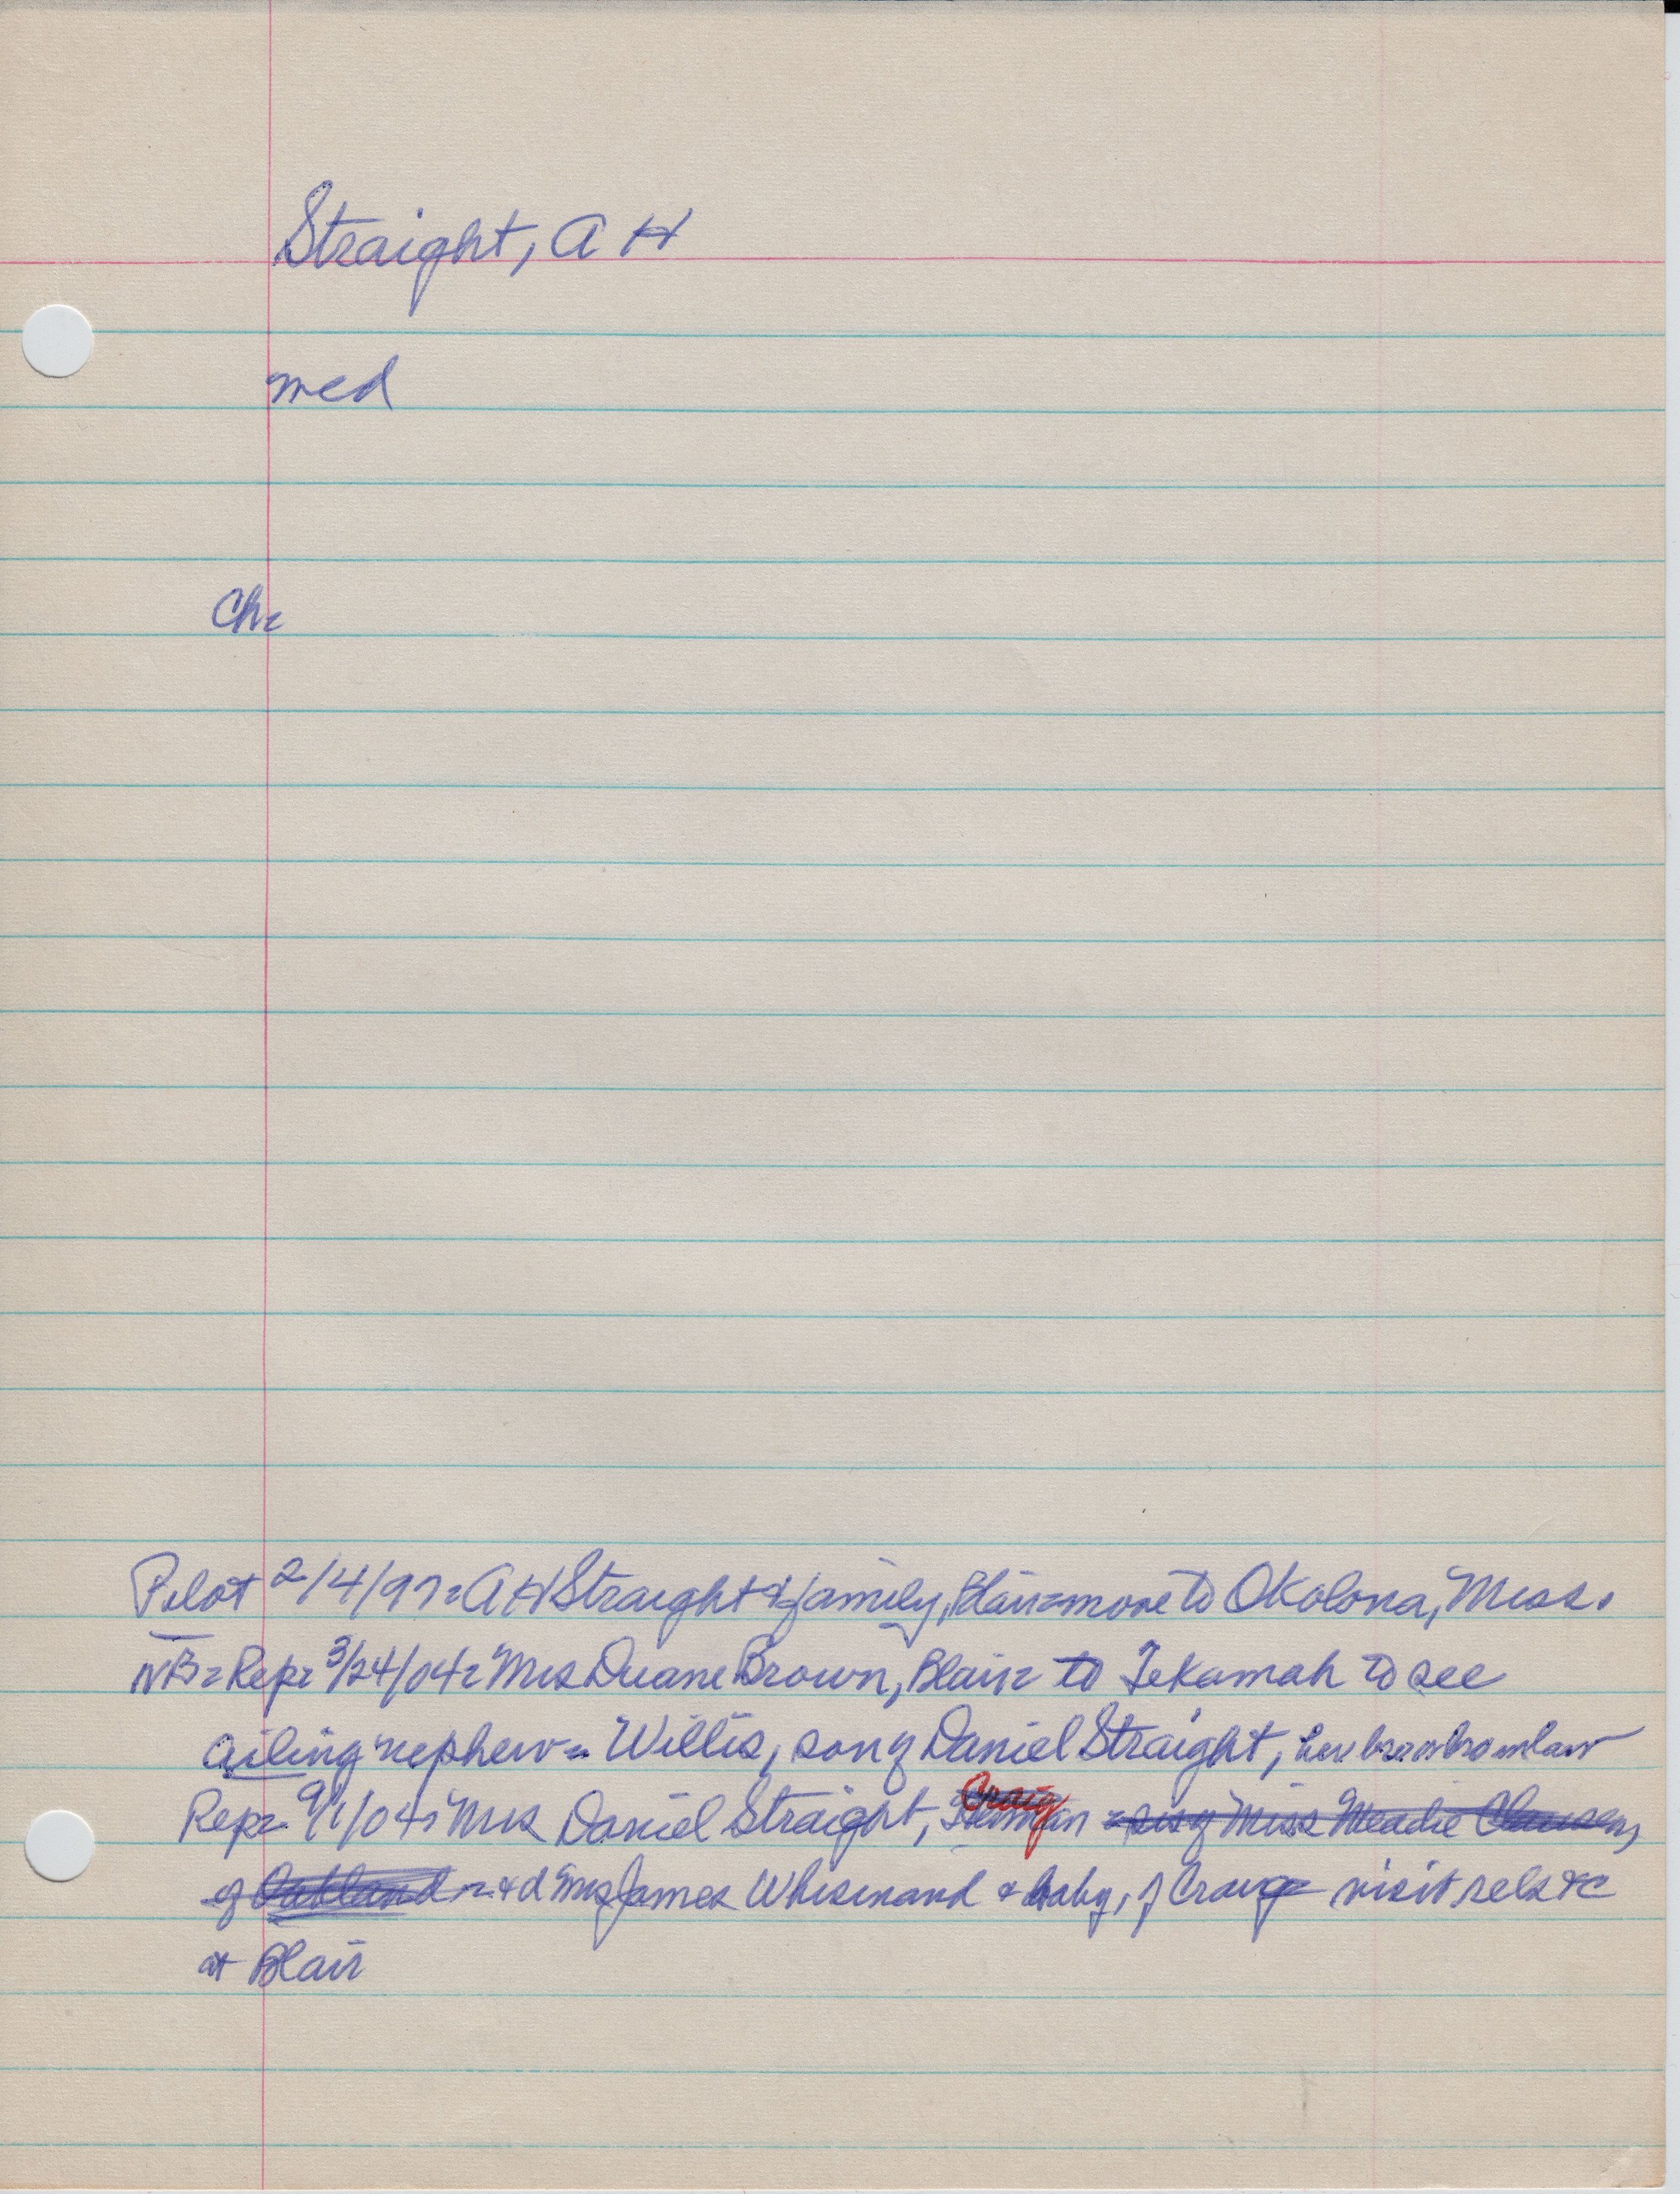 Straight, A H
med
Ch=
Pilot 2/4/97= A H Straight & family, Blair= move to Okolona, Miss.
NB= Rep= 3/24/04= Mrs Duane Brown, Blair= to Tekamah to see
ailing nephew= Willis, son of Daniel Straight, her bro or bro in law
Rep= 9/1/04= Mrs Daniel Straight, Craig = sis of Miss Meadie Clausen,
of Oakland = & d Mrs James Whisinand & baby, of Craig= visit rels &c
at Blair